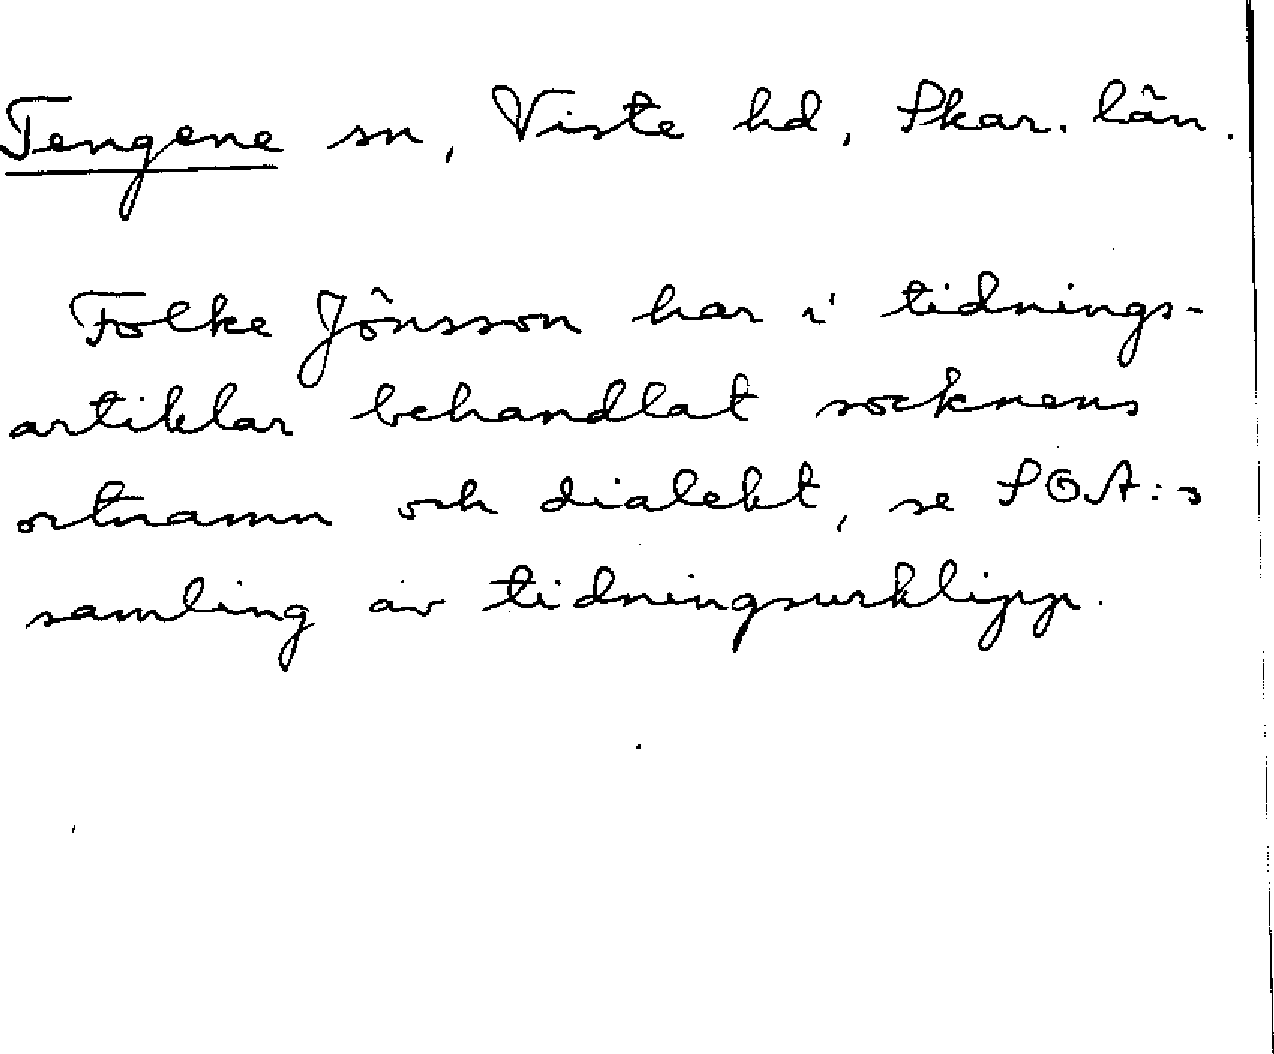 Tengene sn, Viste hd, Skar. län.
Folke Jönsson har i tidnings-
artiklar behandlat socknens
ortnamn och dialekt, se SOA:s
samling av tidningsurklipp.